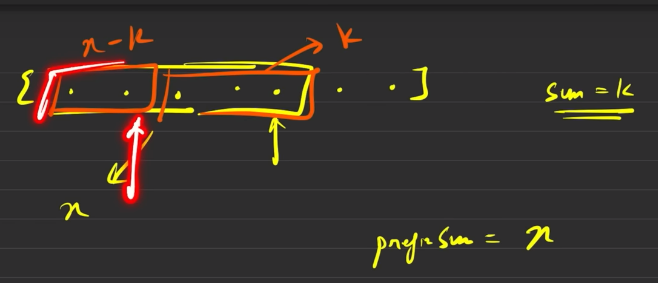 x - k
k
[ . . . . . . . ]
sum = k
x
prefix sum = x